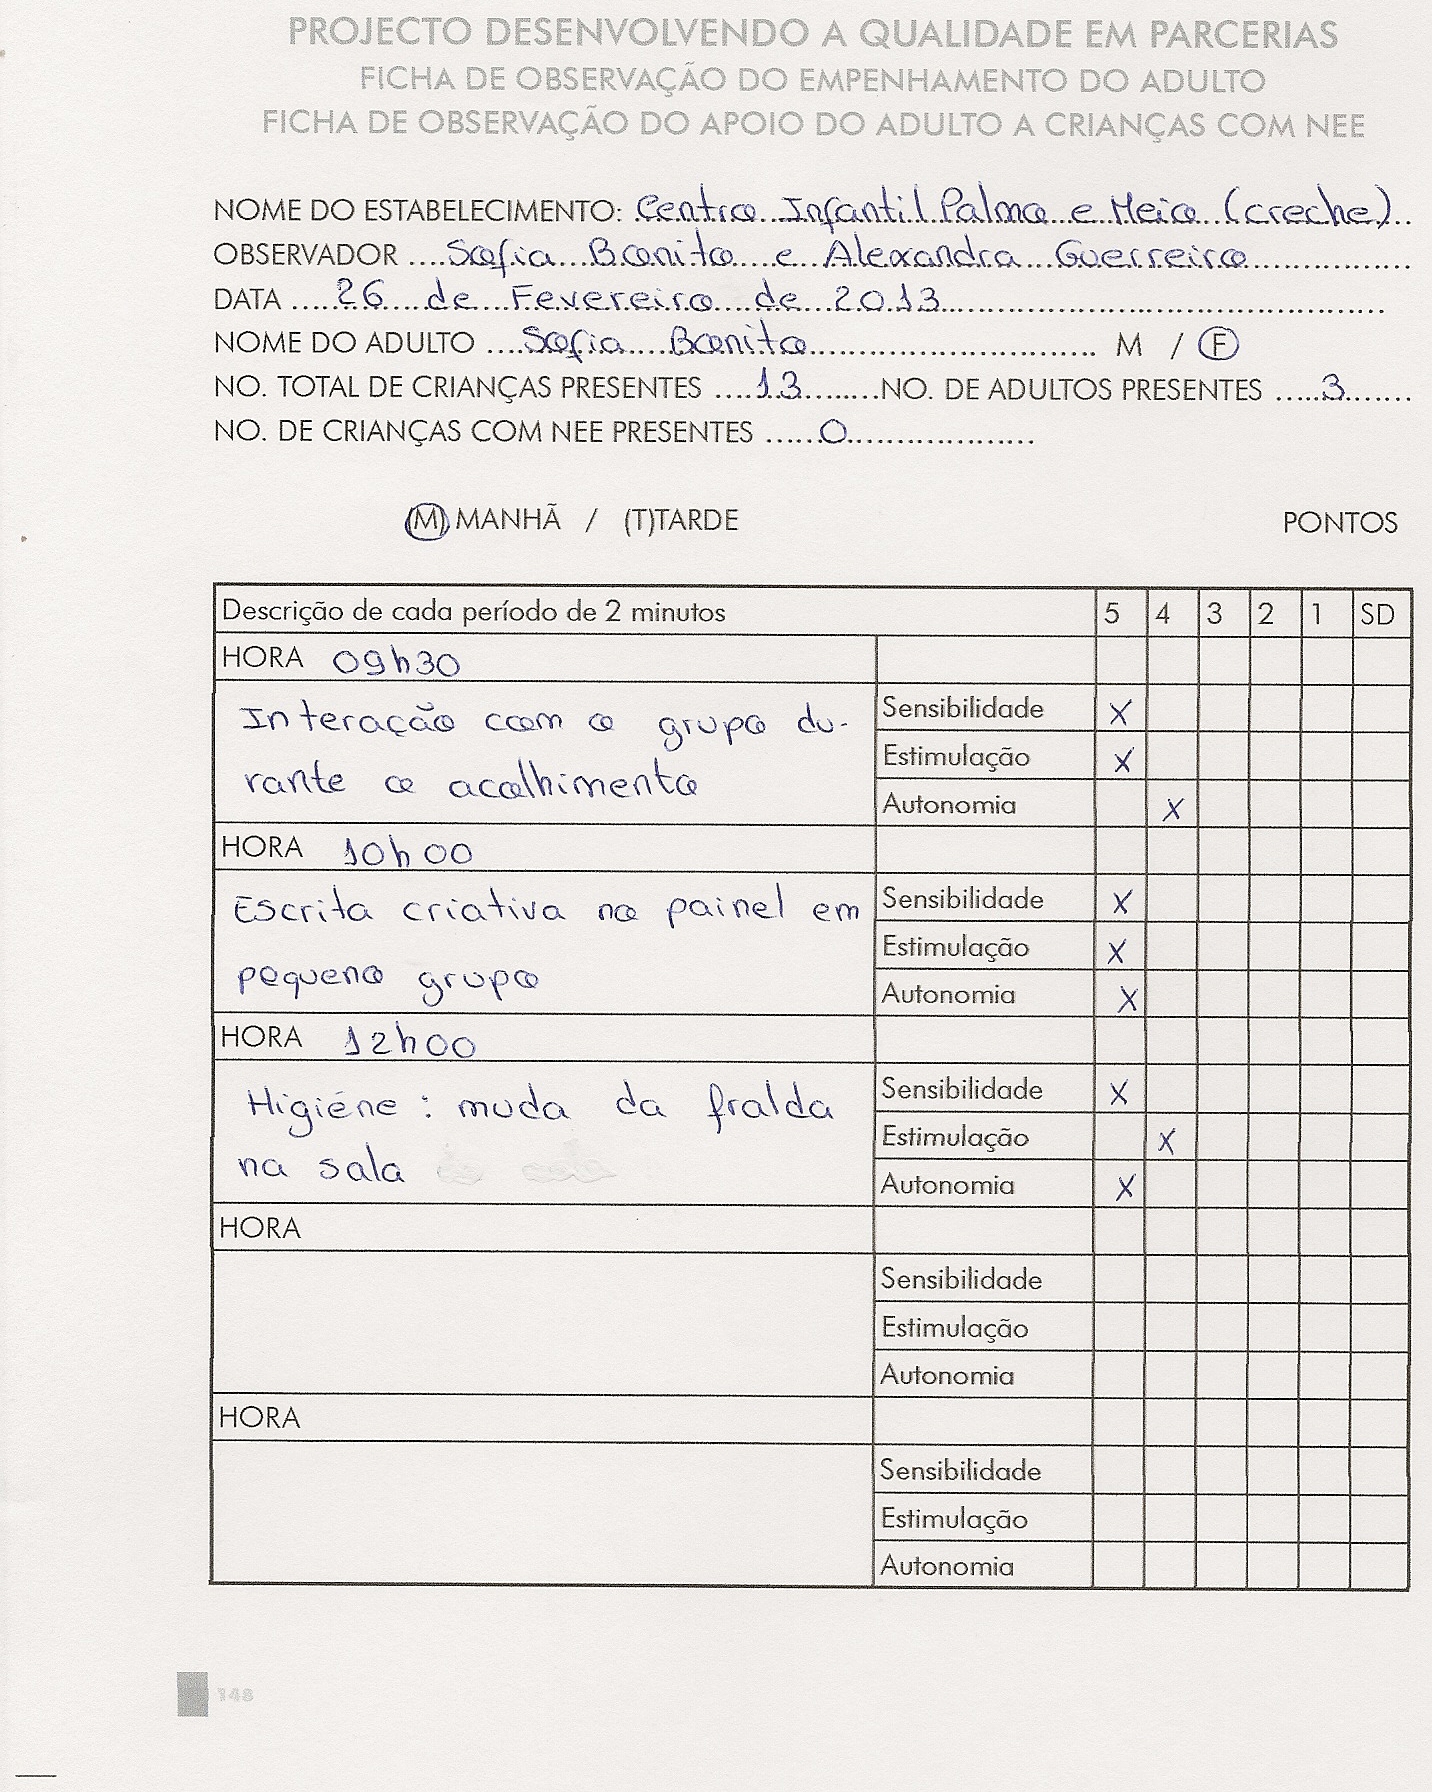 PROJECTO DESENVOLVENDO A QUALIDADE EM PARCERIAS
FICHA DE OBSERVAÇÃO DO EMPENHAMENTO DO ADULTO
FICHA DE OBSERVAÇÃO DO APOIO DO ADULTO A CRIANÇAS COM NEE
NOME DO ESTABELECIMENTO: Centro Infantil Palmo e Meio (creche)
OBSERVADOR Sofia Bonito e Alexandra Guerreiro
DATA 26 de Fevereiro de 2013
NOME DO ADULTO Sofia Bonito M / (F)
NO. TOTAL DE CRIANÇAS PRESENTES 13 NO. DE ADULTOS PRESENTES 3
NO. DE CRIANÇAS COM NEE PRESENTES 0
(M) MANHÃ / (T)TARDE PONTOS
Descrição de cada período de 2 minutos 5 4 3 2 1 SD
HORA 09h30
Interação com o grupo du-
rante o acolhimento
Sensibilidade X
Estimulação X
Autonomia X
HORA 10h00
Escrita criativa no painel em
pequeno grupo
Sensibilidade X
Estimulação X
Autonomia X
HORA 12h00
Higiéne : muda da fralda
na sala
Sensibilidade X
Estimulação X
Autonomia X
HORA
Sensibilidade
Estimulação
Autonomia
HORA
Sensibilidade
Estimulação
Autonomia
148